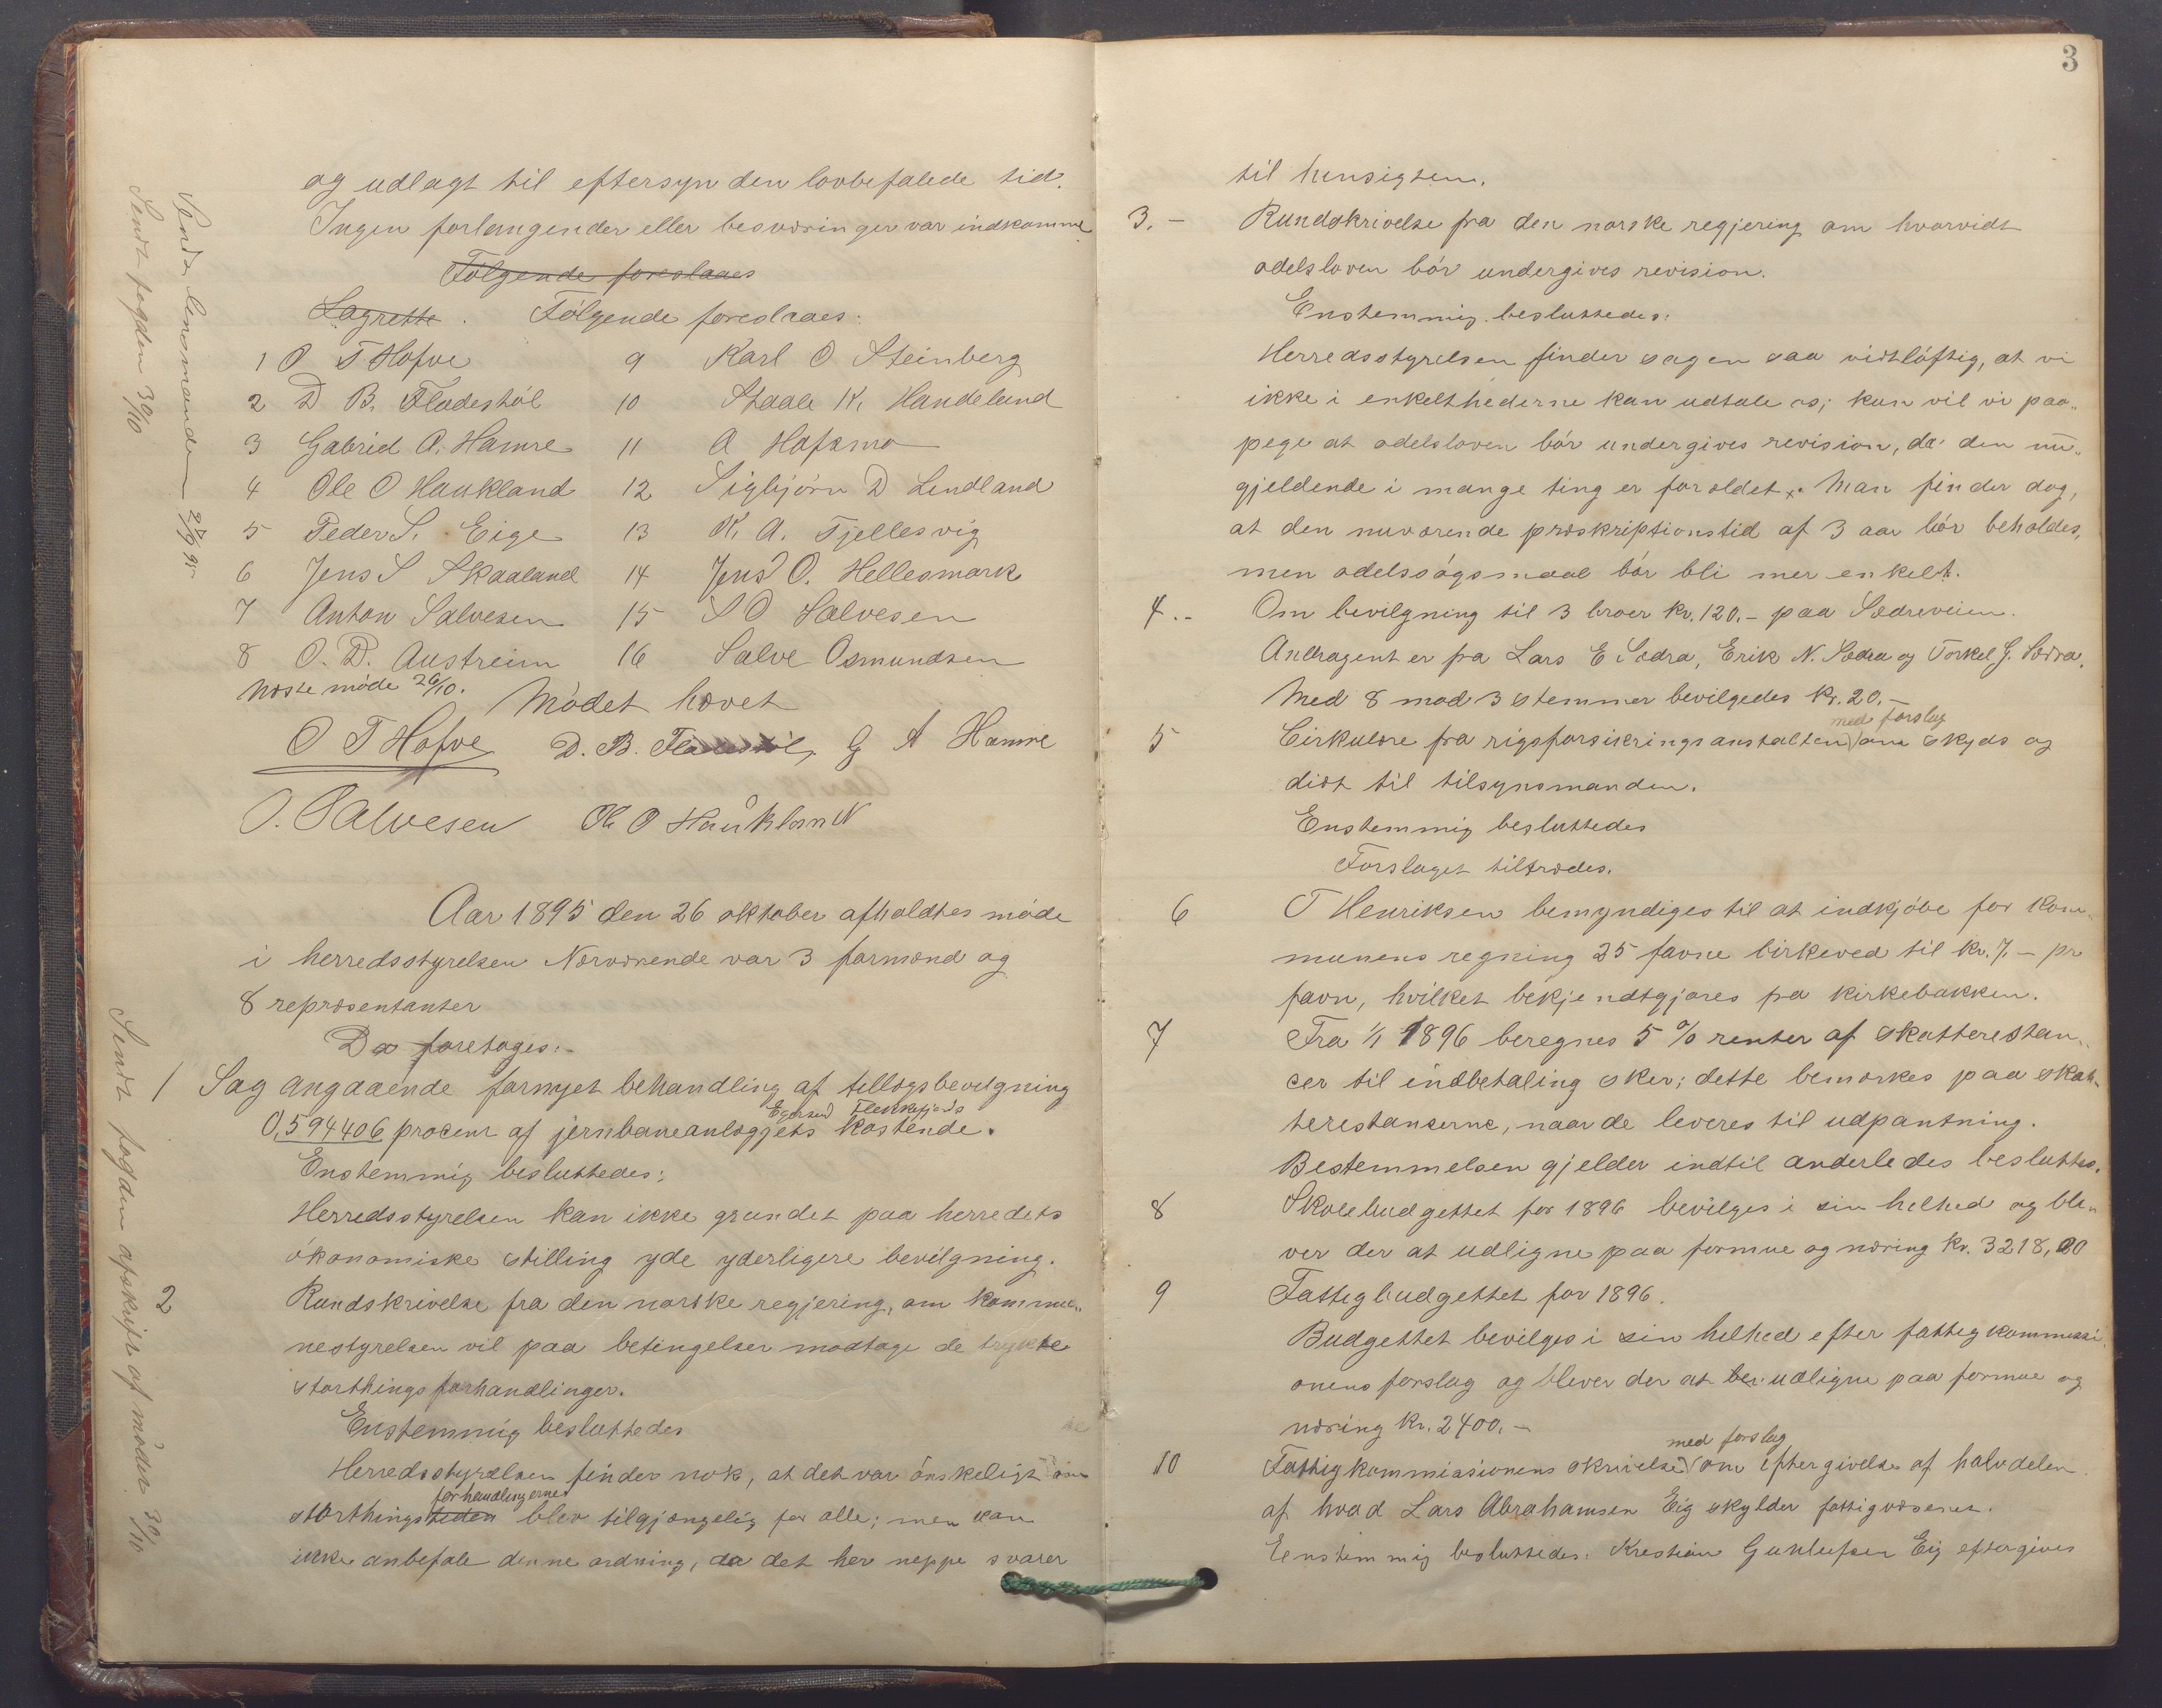 og udlagt til eftersyn den lovbefalede tid.
Ingen forlangender eller besværinger var indkomne
Følgende foreslaaes
Lagrette. Følgende foreslaaes:
1 O T Hofve 9 Karl O Steinberg
2 D B. Fladestøl 10 Staale K. Handeland
3 Gabriel A. Hamre 11 A Hafsmo
4 Ole O Haukland 12 Sigbjørn D Lindland
5 Peder S. Eige 13 K. A. Tjellesvig
6 Jens S Skaaland 14 Jens O. Hellesmark
7 Anton Salvesen 15 S O Salvesen
8 O. D. Austreim 16 Salve Osmundsen
Næste møde 26/10. Mødet hævet
O T Hofve D. B. Fladestøl, G A Hamre
O. Salvesen Ole O Haukland
Sendt lensmanden 27/9 95
Sendt fogden 30/10
Aar 1895 den 26 oktober afholdtes møde
i herredsstyrelsen Nærværende var 3 formænd og
8 repræsentanter
Da foretoges:-
1 Sag angaaende fornyet behandling af tillægsbevilgning
Egersund Flekkefjords
0,594406 procent af jernbaneanlæggets kostende.
Enstemmig besluttedes:
Herredsstyrelsen kan ikke grundet paa herredets
økonomiske stilling yde yderligere bevilgning.
2 Rundskrivelse fra den norske regjering, om kommu„
nestyrelsen vil paa betingelser modtage de trykte
storthingsforhandlinger.
Enstemmig besluttedes
Herredsstyrelsen finder nok, at det var ønskeligt om
forhandlingerne
storthingstiden blev tilgjængelig for alle; men kan
ikke anbefale denne ordning, da det her neppe svarer
Sendt fogden afskrift af mødet 30/10
3
til hensigten.
3.- Rundskrivelse fra den norske regjering om hvorvidt
odelsloven bør undergives revision.
Enstemmig besluttedes:
Herredsstyrelsen finder sagen saa vidtløftig, at vi
ikke i enkelthederne kan udtale os; kun vil vi paa„
pege at odelsloven bør undergives revision, da den nu„
gjeldende i mange ting er foroldet. Man finder dog,
at den nuværende præskriptionstid af 3 aar bør beholdes,
men odelssøgsmaal bør bli mer enkelt.
4.- Om bevilgning til 3 broer kr. 120.- paa Sædreveien.
Andragent er fra Lars E Sædra, Erik N. Sædra og Torkel G. Sædra.
Med 8 mod 3 stemmer bevilgedes kr. 20.-
med forslag
5 Cirkulære fra rigsforsikringsanstalten om skyds og
diæt til tilsynsmanden.
Enstemmig besluttedes
Forslaget tiltrædes.
6 T Henriksen bemyndiges til at indkjøbe for kom„
munens regning 25 favne birkeved til kr. 7.- pr
favn, hvilket bekjendtgjøres pa kirkebakken.
7 Fra 1/1 1896 beregnes 5 % renter af skatterestan„
cer til indbetaling sker; dette bemærkes paa skat„
terestanserne, naar de leveres til udpantning.
Bestemmelsen gjelder indtil anderledes besluttes.
8 Skolebudgettet for 1896 bevilges i sin helhed og bli„
ver der at udligne paa formue og næring kr. 3218,00
9 Fattigbudgettet for 1896.
Budgettet bevilges i sin helhed efter fattigkommissi
onens forslag og blever der at be udligne paa formue og
næring kr. 2400.-
med forslag
10 Fattigkommissionens skrivelse om eftergivelse af halvdelen
af hvad Lars Abrahamsen Eig skylder fattigvæsenet.
Eenstemmig besluttedes: Kristian Gunlufsen Eig eftergives